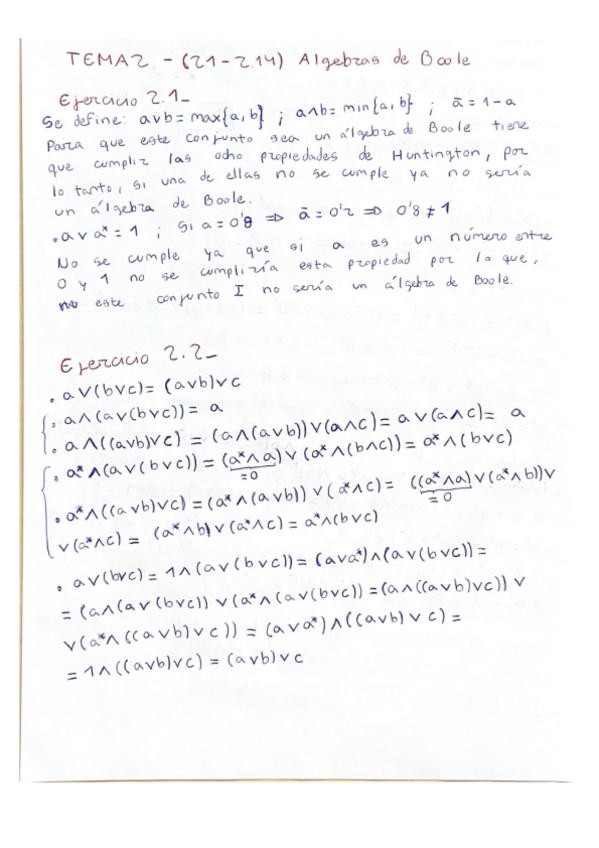 TEMA 2 - (2.1 - 2.14) Algebras de Boole
Ejercicio 2.1_
Se define: a∨b = max{a,b} ; a∧b = min{a,b} ; ā = 1-a
Para que este conjunto sea un álgebra de Boole tiene
que cumplir las ocho propiedades de Huntington, por
lo tanto, si una de ellas no se cumple ya no sería
un álgebra de Boole.
. a ∨ a* = 1 ; Si a = 0'8 ⇒ ā = 0'2 ⇒ 0'8 ≠ 1
No se cumple ya que si a es un número entre
0 y 1 no se cumpliría esta propiedad por lo que,
este conjunto I no sería un álgebra de Boole.
Ejercicio 2.2_
. a∨(b∨c) = (a∨b)∨c
. a∧(a∨(b∨c)) = a
. a∧((a∨b)∨c) = (a∧(a∨b))∨(a∧c) = a∨(a∧c) = a
. a*∧(a∨(b∨c)) = (a*∧a)∨(a*∧(b∧c)) = a*∧(b∨c)
=0
. a*∧((a∨b)∨c) = (a*∧(a∨b))∨(a*∧c) = ((a*∧a)∨(a*∧b))∨
=0
∨(a*∧c) = (a*∧b)∨(a*∧c) = a*∧(b∨c)
. a∨(b∨c) = 1∧(a∨(b∨c)) = (a∨a*)∧(a∨(b∨c)) =
= (a∧(a∨(b∨c)) ∨(a*∧(a∨(b∨c)) = (a∧((a∨b)∨c)) ∨
∨(a*∧((a∨b)∨c)) = (a∨a*)∧((a∨b)∨c) =
= 1∧((a∨b)∨c) = (a∨b)∨c